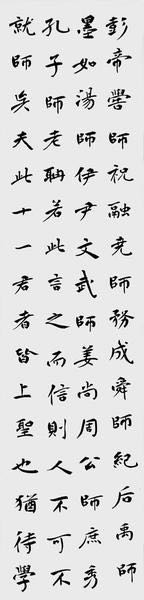 彭帝嚳師祝融堯師務成舜師紀后禹師
墨如湯師伊尹文武師姜尚周公師庶秀
孔子師老聃若此言之而信則人不可不
就師矣夫此十一君者皆上聖也猶待學